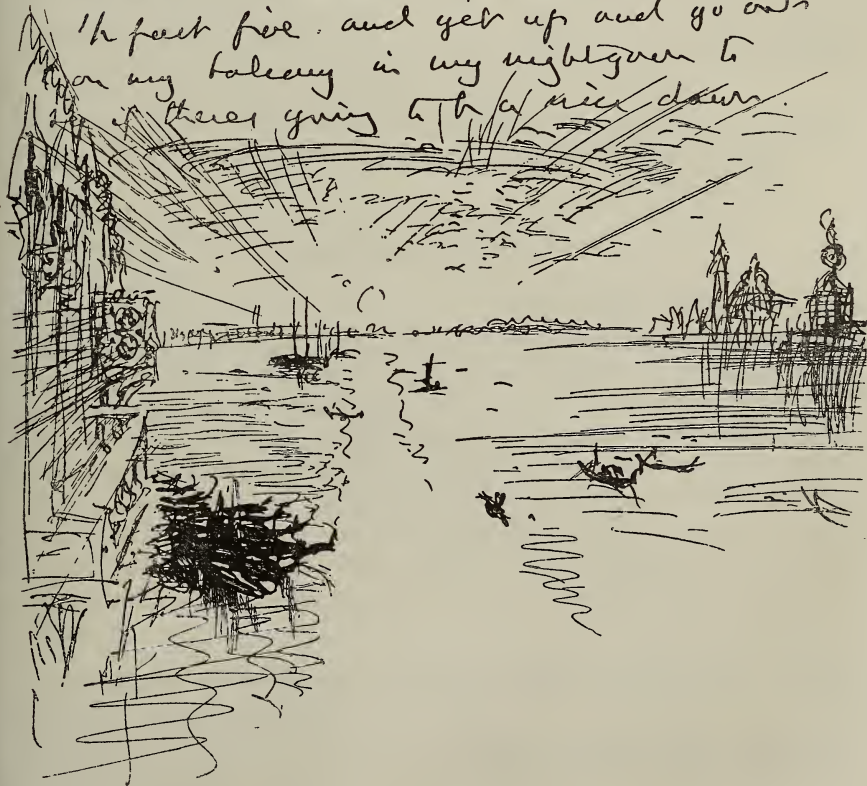 ½ past five. and get up and go out
on my balcony in my nightgown to
if there's going to be a nice dawn.